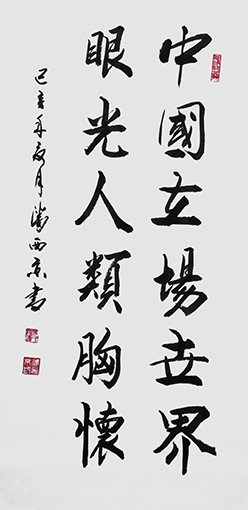 中國立場世界
眼光人類胸懷
己亥年夏月潘西京書